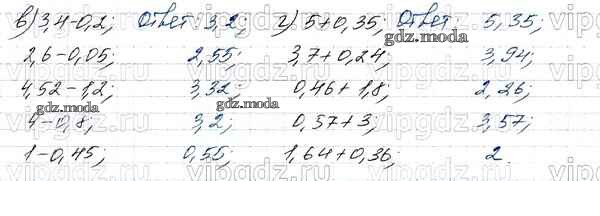 в) 3,4-0,2; Ответ 3,2; г) 5+0,35; Ответ: 5,35;
2,6-0,05; 2,55; 3,7+0,24; 3,94;
4,52-1,2; 3,32; 0,46+1,8; 2,26;
4-0,8; 3,2; 0,57+3; 3,57;
1-0,45; 0,55; 1,64+0,36; 2.
gdz.moda
gdz.moda
gdz.moda
vipgdz.ru
vipgdz.ru
vipgdz.ru